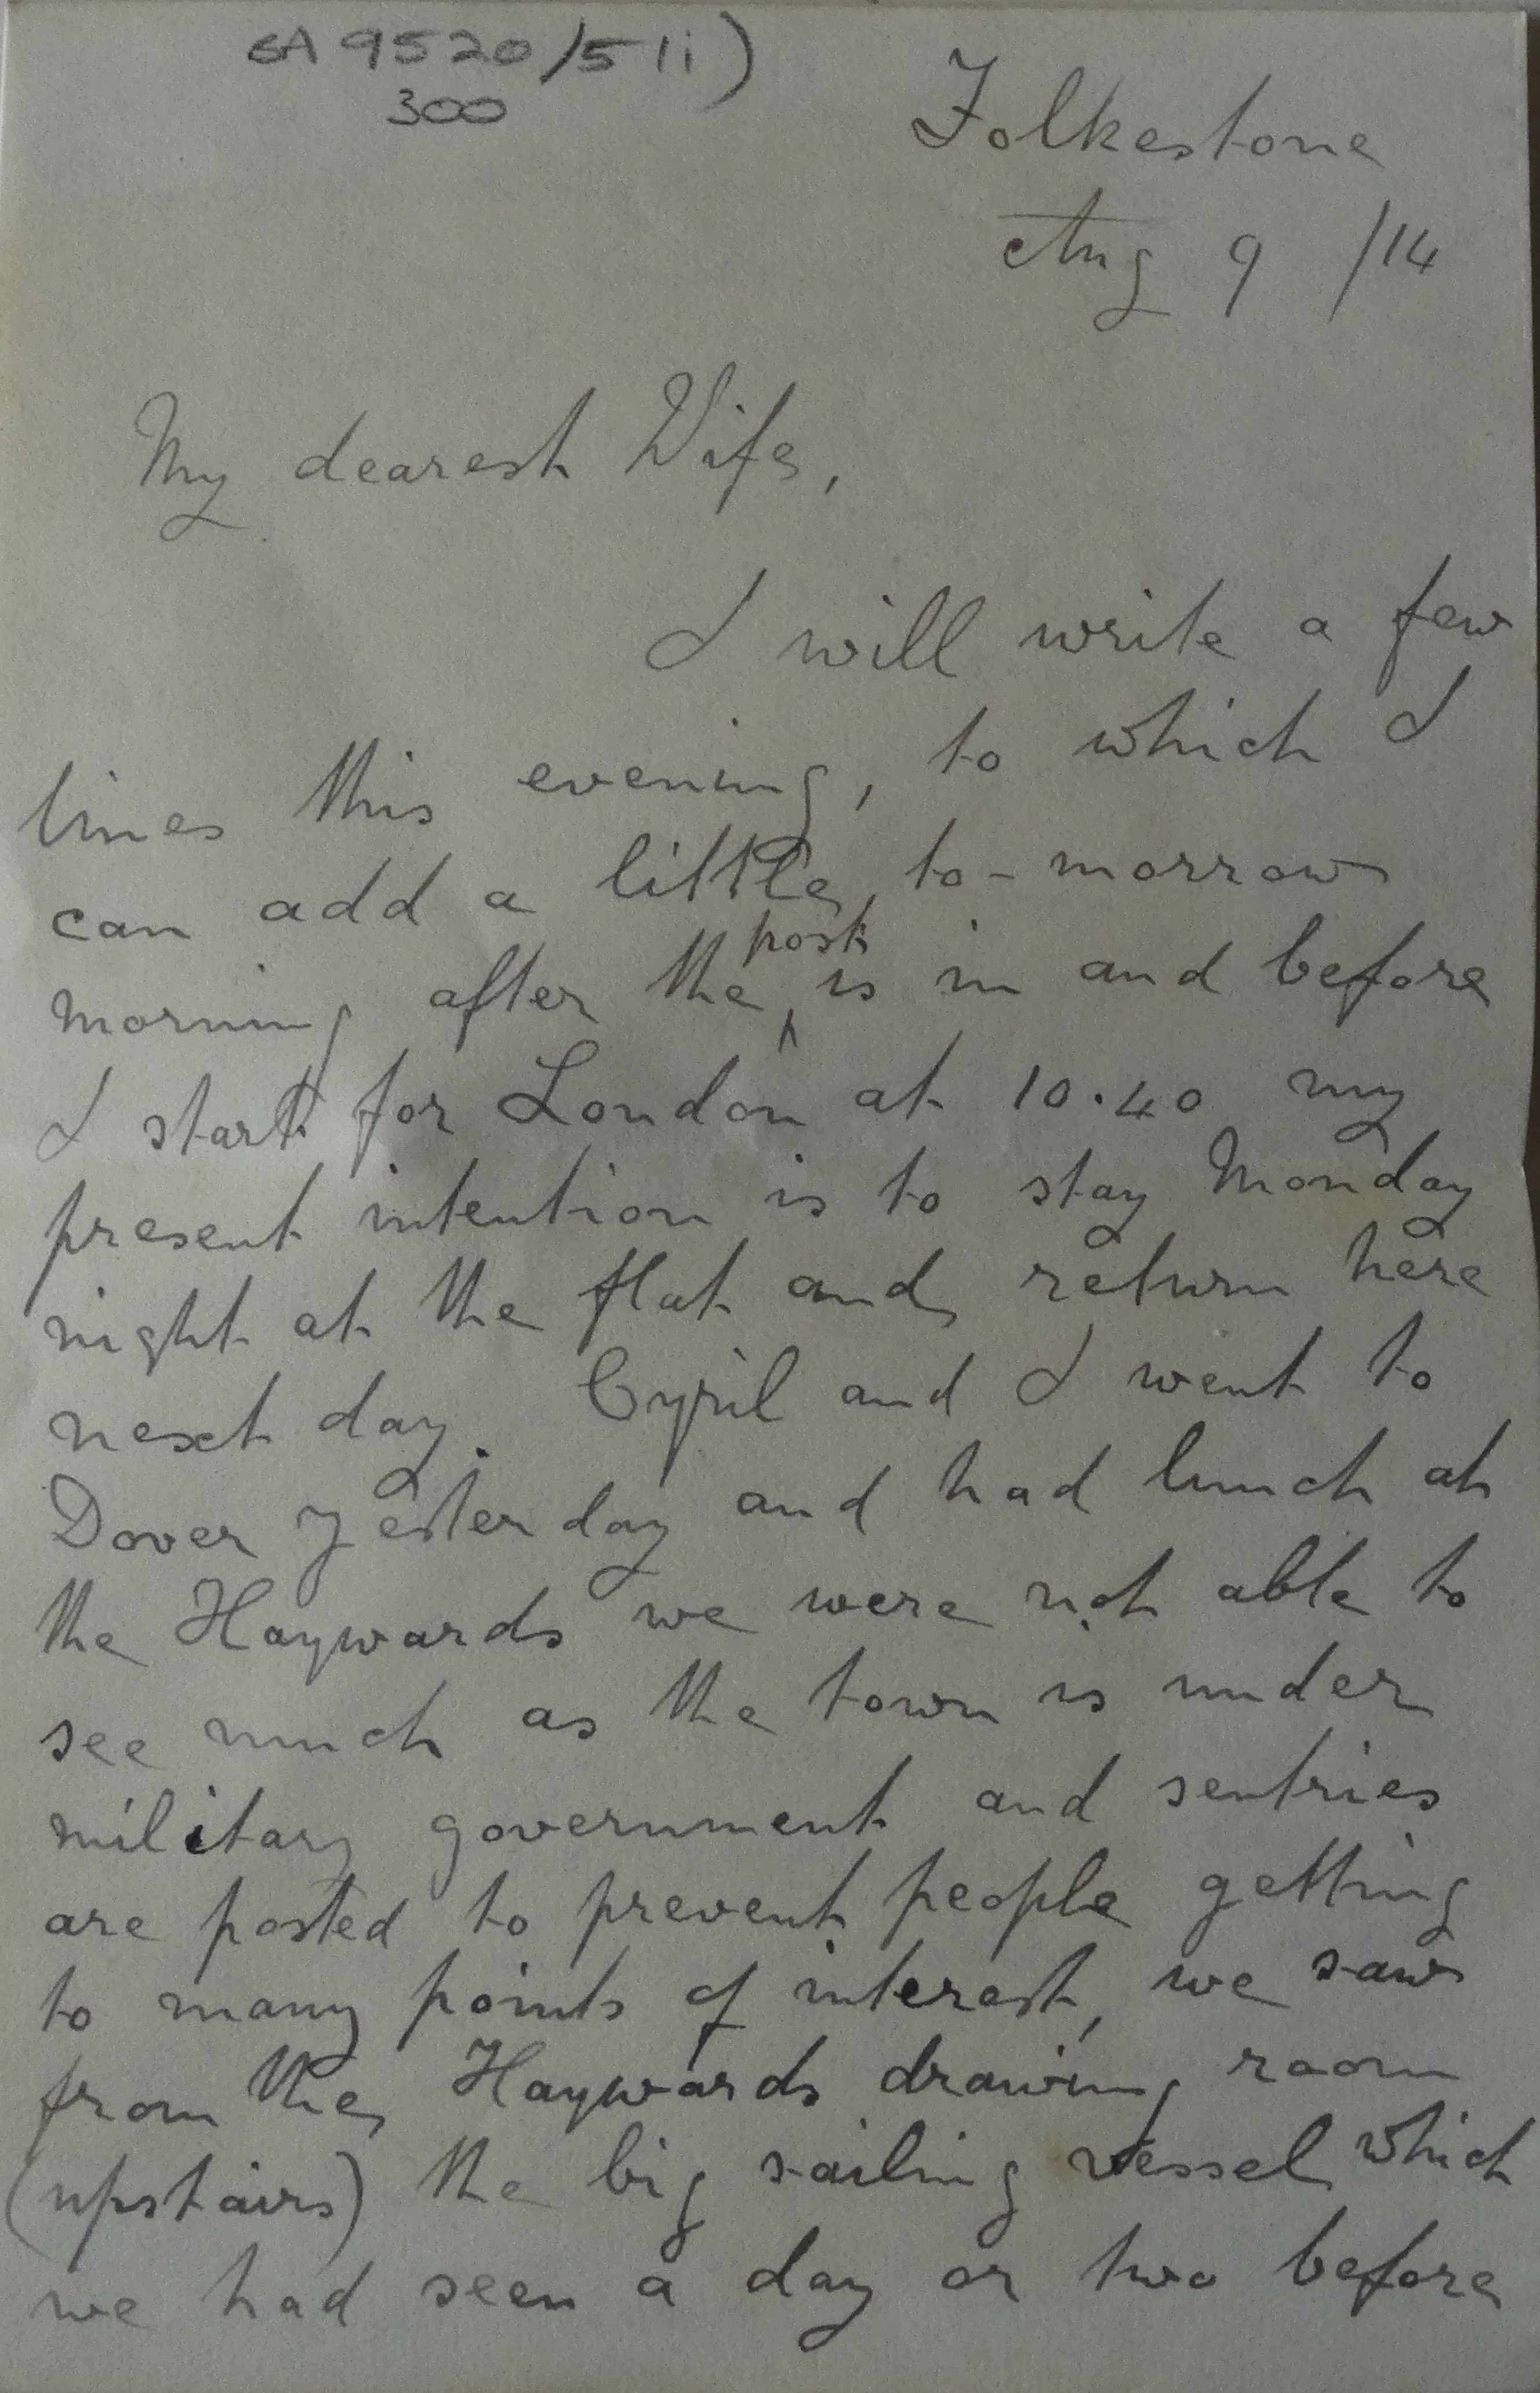 GA 9520/5 1i)
300
Folkestone
Aug 9 /14
My dearest Wife,
I will write a few
lines this evening, to which I
can add a little to-morrow
post
morning after the ^ is in and before
I start for London at 10.40 my
present intention is to stay Monday
night at the flat and return here
next day. Cyril and I went to
Dover yesterday and had lunch at
the Haywards we were not able to
see much as the town is under
military government and sentries
are posted to prevent people getting
to many points of interest, we saw
from the Haywards drawing room
(upstairs) the big sailing vessel which
we had seen a day or two before